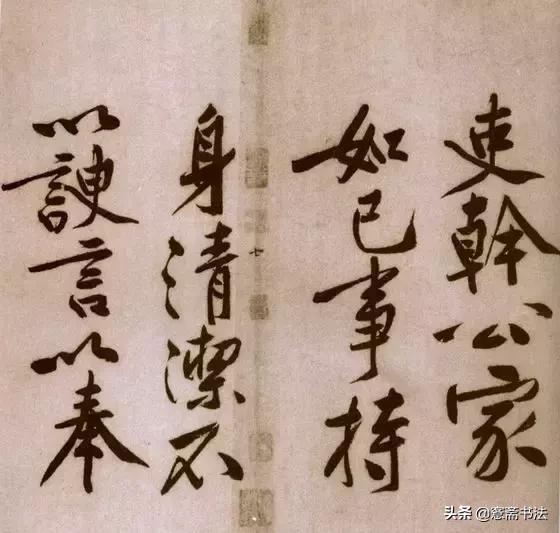 吏幹公家
如已事持
七
身清潔不
以諛言以奉
头条 @愙斋书法